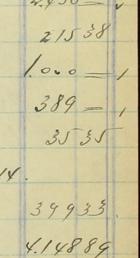 2.450 =
21538
1.000 = 1
389 = 1
3535
14.
39933.
4.14889